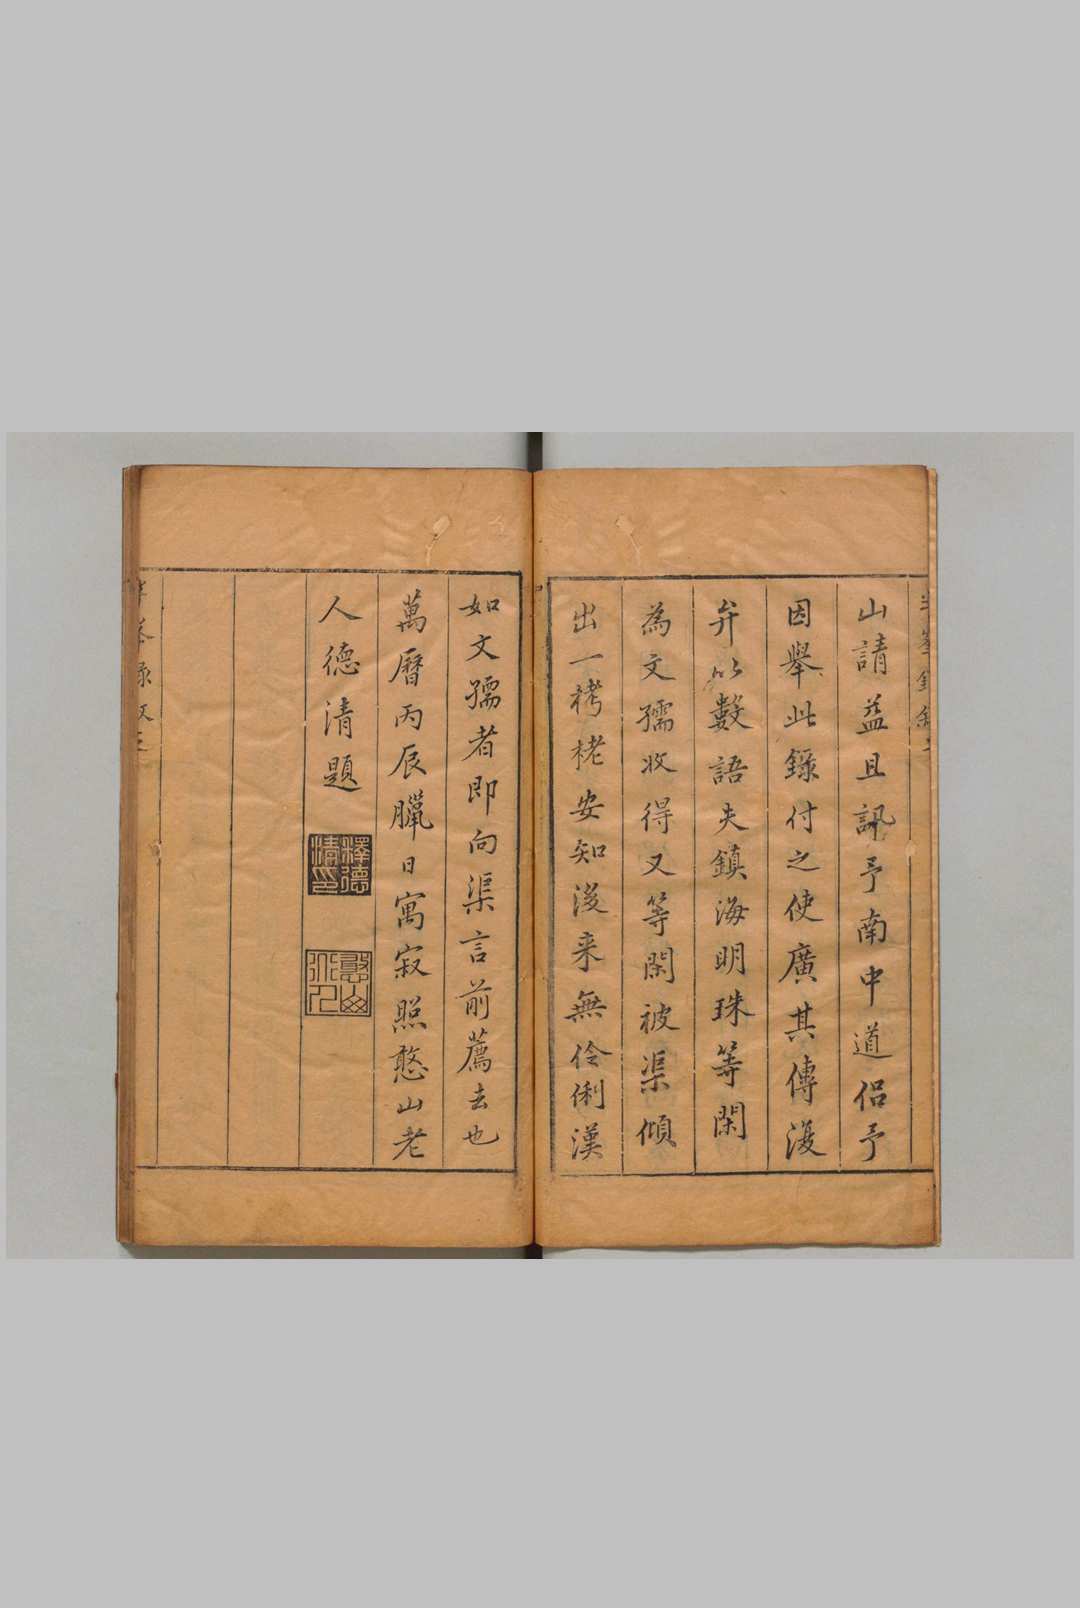 山請益且訊予南中道侶予
因舉此錄付之使廣其傳復
弁以數語夫鎮海明珠等閑
為文孺收得又等閑被渠傾
出一栲栳安知後来無伶俐漢
如文孺者即向渠言前薦去也
萬曆丙辰臘日寓寂照憨山老
人德清題
釋德清印
憨山道人